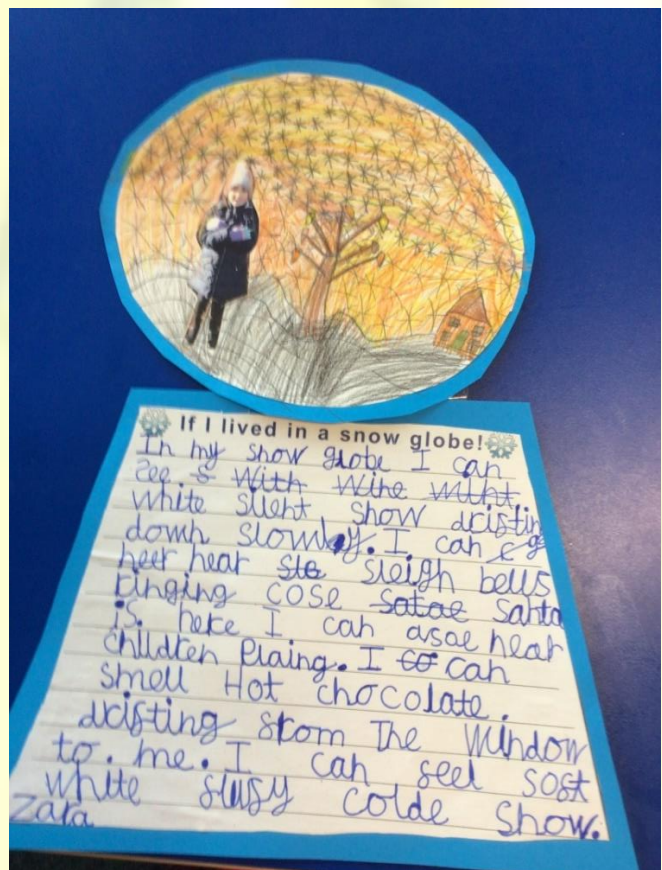 If I lived in a snow globe!
In my snow globe I can
see. s With Wine Wiht
white silent snow drifting
down slowly. I can
heer hear sle sleigh bells
ringing cose satae Santa
is. here I can asoe hear
children Plaing. I co can
smell Hot chocolate.
drifting from The window
to. me. I can feel soft
white flufy colde snow.
Zara